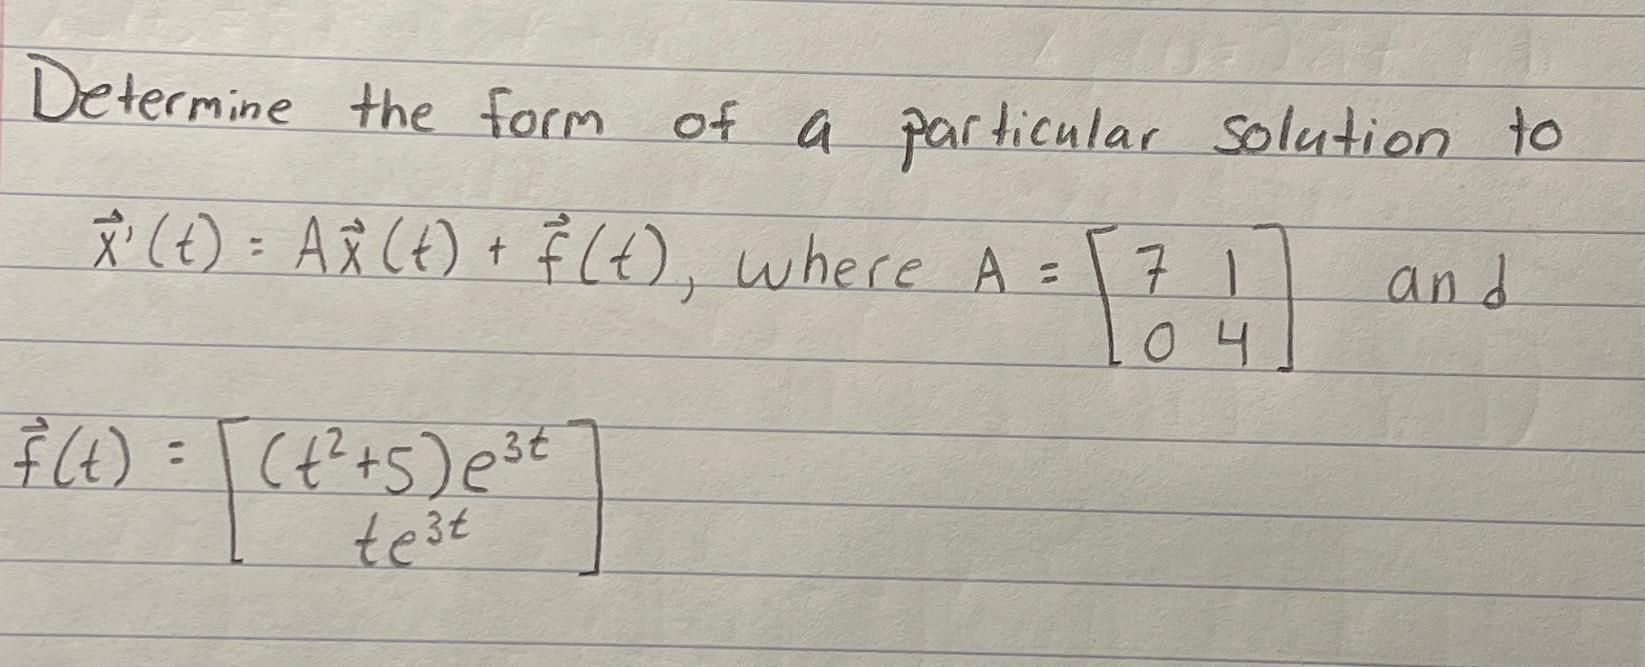 Determine the form of a particular solution to
x⃗'(t) = Ax⃗(t) + f⃗(t), where A = [7 1; 0 4] and
f⃗(t) = [(t²+5)e³ᵗ; te³ᵗ]